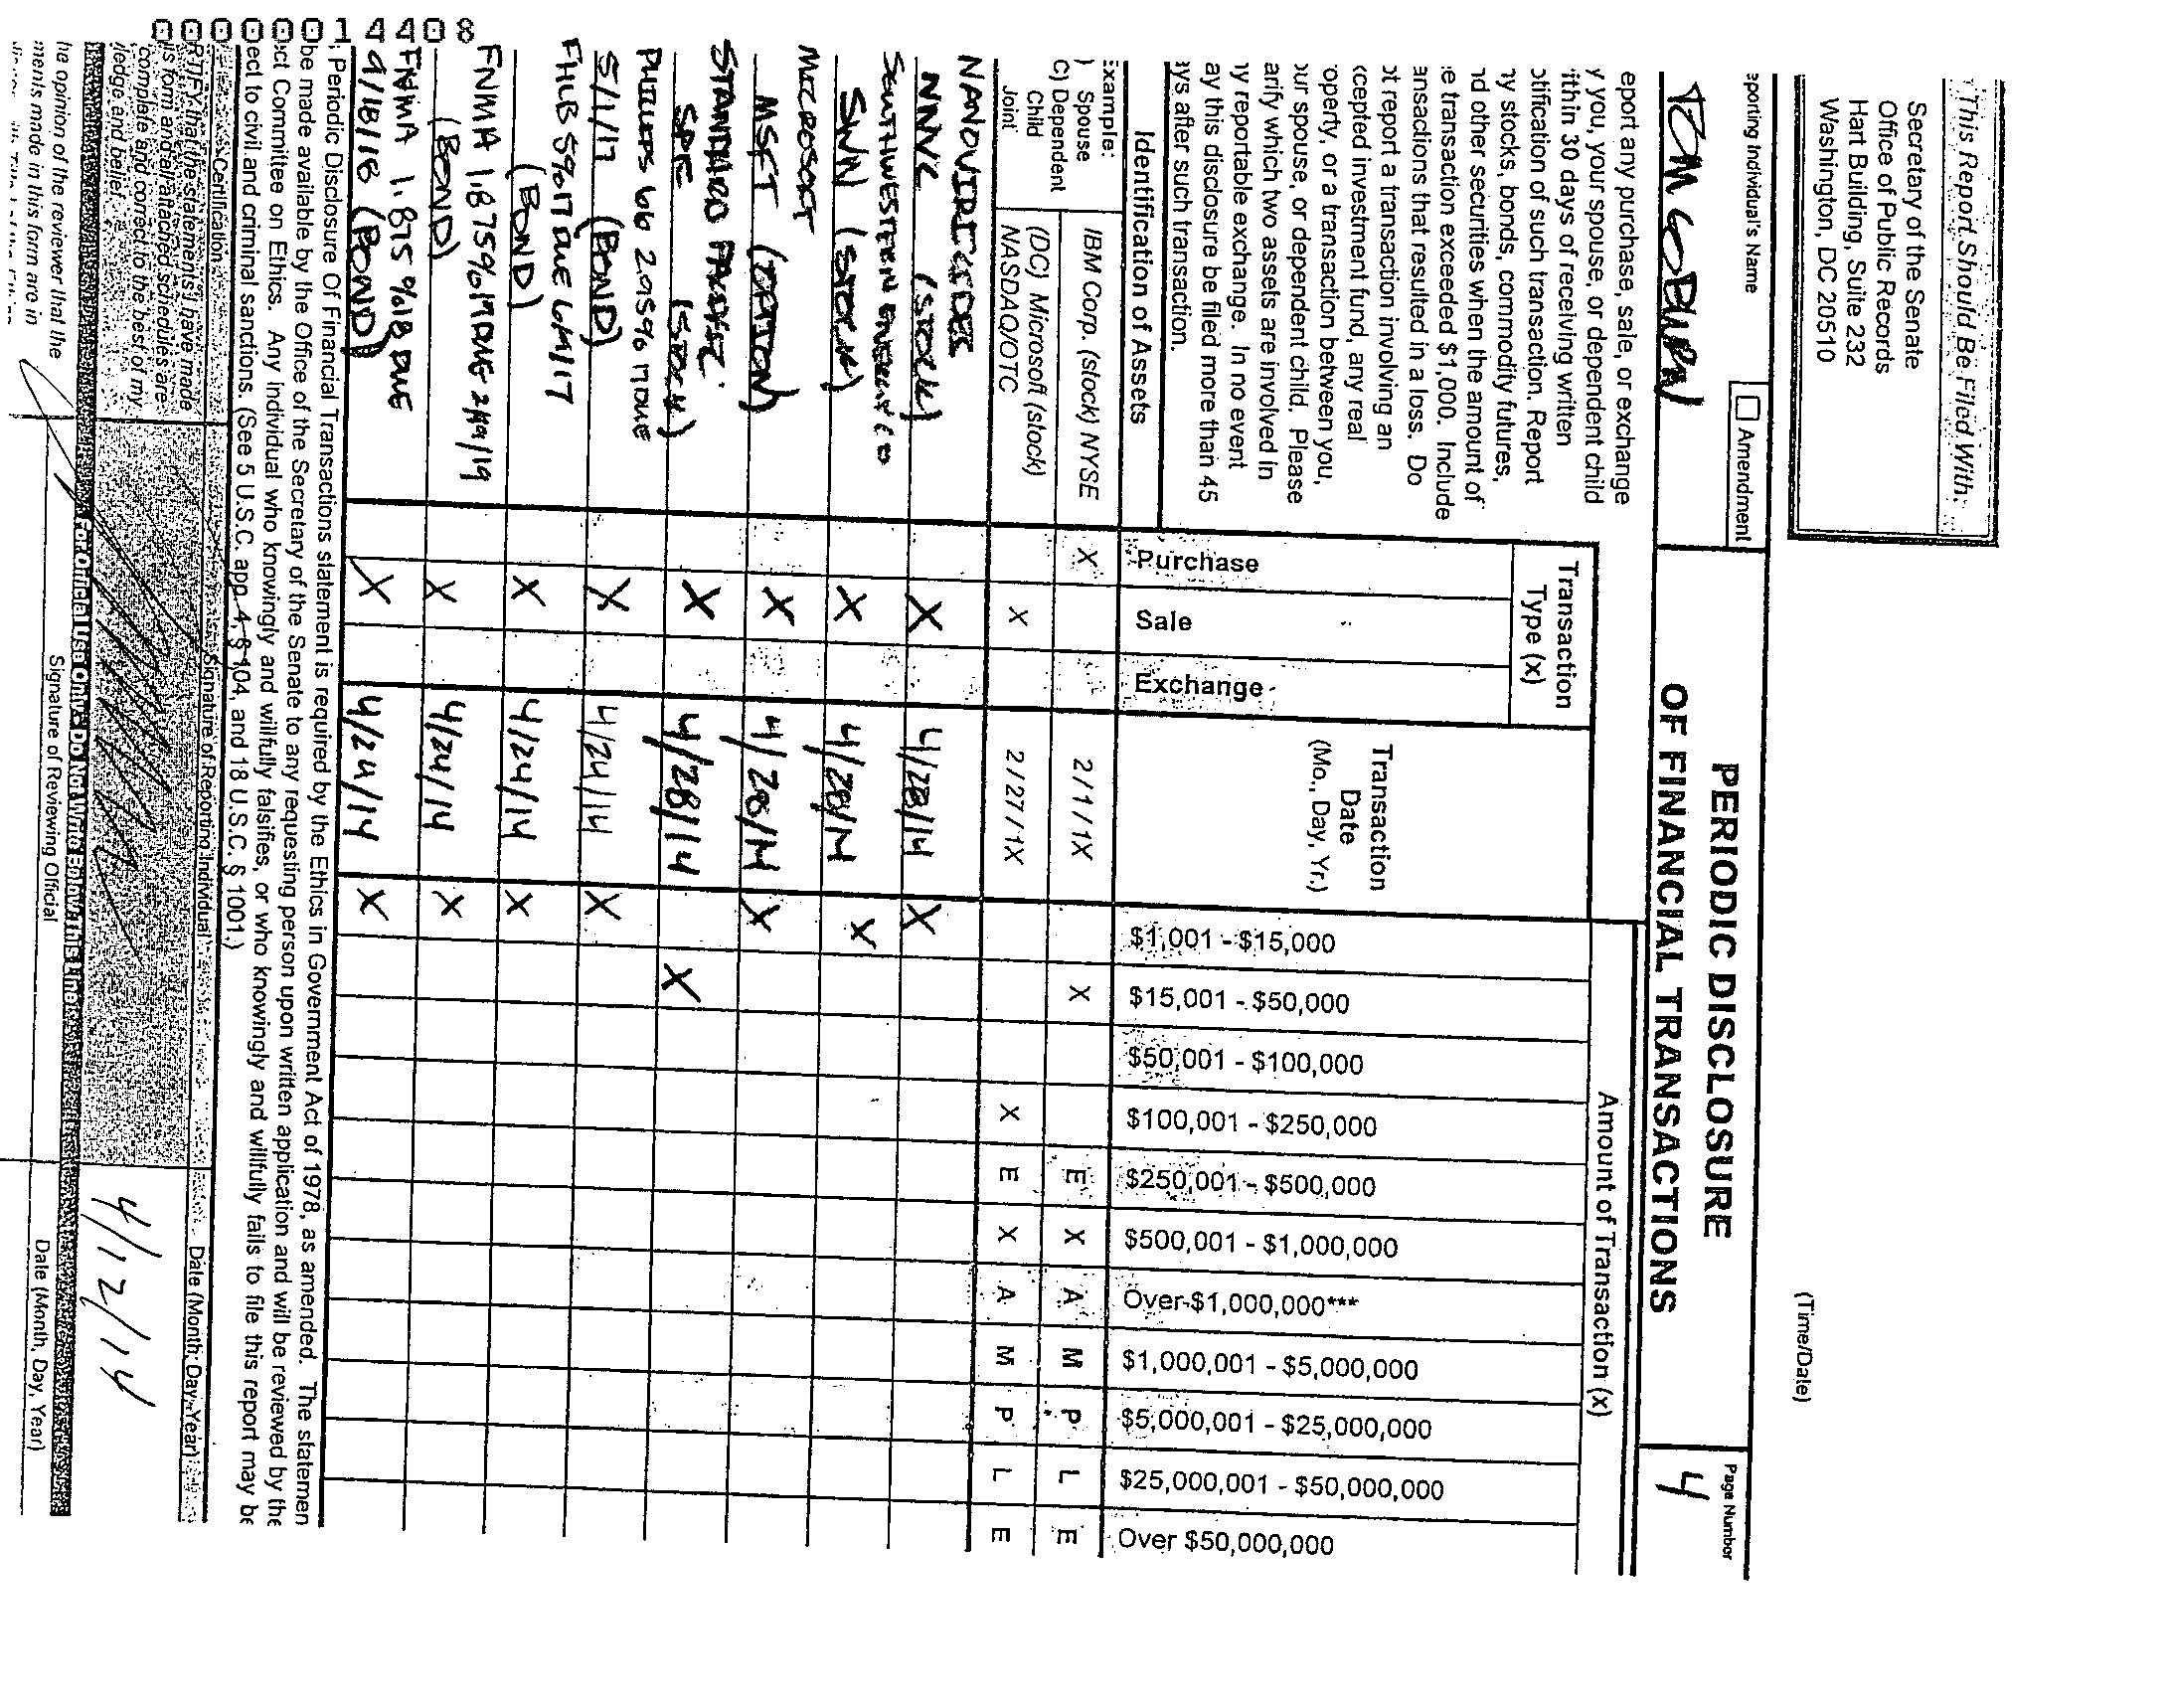 This Report Should Be Filed With:
Secretary of the Senate
Office of Public Records
Hart Building, Suite 232
Washington, DC 20510
(Time/Date)
eporting Individual's Name
Amendment
TOM COBURN
PERIODIC DISCLOSURE
OF FINANCIAL TRANSACTIONS
Page Number
4
eport any purchase, sale, or exchange
y you, your spouse, or dependent child
ithin 30 days of receiving written
otification of such transaction. Report
ny stocks, bonds, commodity futures,
nd other securities when the amount of
e transaction exceeded $1,000. Include
ansactions that resulted in a loss. Do
ot report a transaction involving an
xcepted investment fund, any real
operty, or a transaction between you,
our spouse, or dependent child. Please
arify which two assets are involved in
ny reportable exchange. In no event
ay this disclosure be filed more than 45
ays after such transaction.
Transaction
Type (x)
Transaction
Date
(Mo., Day, Yr.)
Amount of Transaction (x)
Identification of Assets
Purchase
Sale
Exchange
$1,001 - $15,000
$15,001 - $50,000
$50,001 - $100,000
$100,001 - $250,000
$250,001 - $500,000
$500,001 - $1,000,000
Over $1,000,000***
$1,000,001 - $5,000,000
$5,000,001 - $25,000,000
$25,000,001 - $50,000,000
Over $50,000,000
Example:
) Spouse
C) Dependent
Child
Joint
IBM Corp. (stock) NYSE X 2/1/1X X E X A M P L E
(DC) Microsoft (stock)
NASDAQ/OTC X 2/27/1X X E X A M P L E
NANOVIRICIDES
NNVC (STOCK) X 4/28/14 X
SOUTHWESTERN ENERGY CO
SWN (STOCK) X 4/28/14 X
MICROSOFT
MSFT (OPTION) X 4/28/14 X
STANDARD PACIFIC
SPF (STOCK) X 4/28/14 X
PHILLIPS 66 2.95% 17 DUE
5/1/17 (BOND) X 4/24/14 X
FHLB 5% 17 DUE
(BOND) X 4/24/14 X
FNMA 1.875% DUE 2/19/19
(BOND) X 4/24/14 X
FNMA 1.875% 18 DUE
9/18/18 (BOND) X 4/24/14 X
; Periodic Disclosure Of Financial Transactions statement is required by the Ethics in Government Act of 1978, as amended. The statemen
be made available by the Office of the Secretary of the Senate to any requesting person upon written application and will be reviewed by the
ct Committee on Ethics. Any individual who knowingly and willfully falsifies, or who knowingly and willfully fails to file this report may be
ect to civil and criminal sanctions. (See 5 U.S.C. app. 4, § 104, and 18 U.S.C. § 1001.)
Certification
Signature of Reporting Individual
Date (Month, Day, Year)
RTIFY that the statements I have made
is form and all attached schedules are
complete and correct to the best of my
ledge and belief.
4/12/14
For Official Use Only - Do Not Write Below This Line
he opinion of the reviewer that the
ments made in this form are in
Signature of Reviewing Official
Date (Month, Day, Year)
00000014408